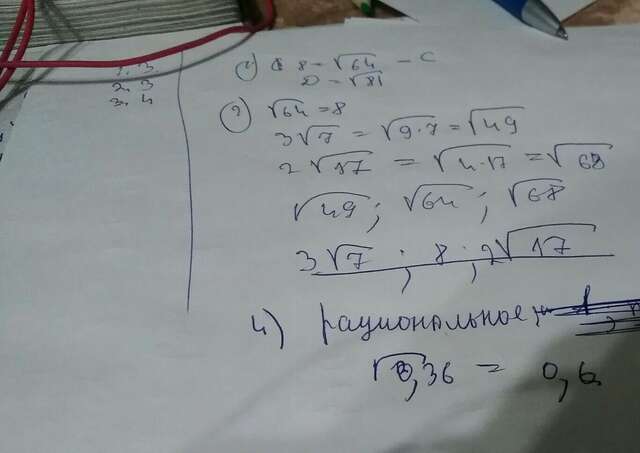 1. 3
2. 3
3. 4
1) 8 = √64 - C
D = √81
2) √64 = 8
3√7 = √9·7 = √49
2√17 = √4·17 = √68
√49 ; √64 ; √68
3√7 ; 8 ; 2√17
4) рациональное,
√0,36 = 0,6